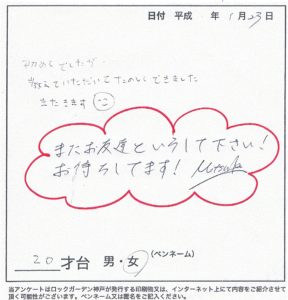 日付 平成 年 1月23日
初めてでしたが
教えていただいてたのしくできました
またきます
またお友達といらして下さい!
お待ちしてます!
20 才台 男・女 (ペンネーム)
当アンケートはロックガーデン神戸が発行する印刷物又は、インターネット上にて内容をご紹介させて
頂く可能性がございます。ペンネーム又は匿名をご記入ください。